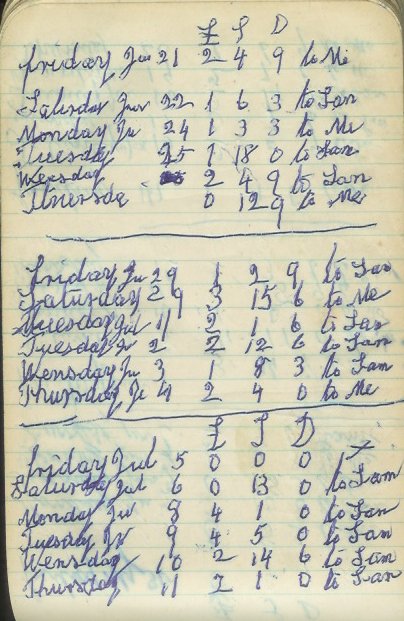 £ S D
friday Jun 21 2 4 9 to Me
Saturday Jun 22 1 6 3 to Sam
Monday Ju 24 1 3 3 to Me
Tuesday 25 1 18 0 to Sam
Wensday 2 4 9 to Sam
Thursda 0 12 9 to Me
friday Ju 29 1 2 9 to Sam
Saturday 29 3 15 6 to Me
Tuesday Jul 11 2 1 6 to Sam
Tuesday Ju 2 2 12 6 to Sam
Wensday Ju 3 1 8 3 to Sam
Thursday Ju 4 2 4 0 to Me
£ S D
friday Jul 5 0 0 0
Saturday Jul 6 0 13 0 to Sam
Monday Ju 8 4 1 0 to Sam
Tuesday Ju 9 4 5 0 to Sam
Wensday 10 2 14 6 to Sam
Thursday 11 2 1 0 to Sam